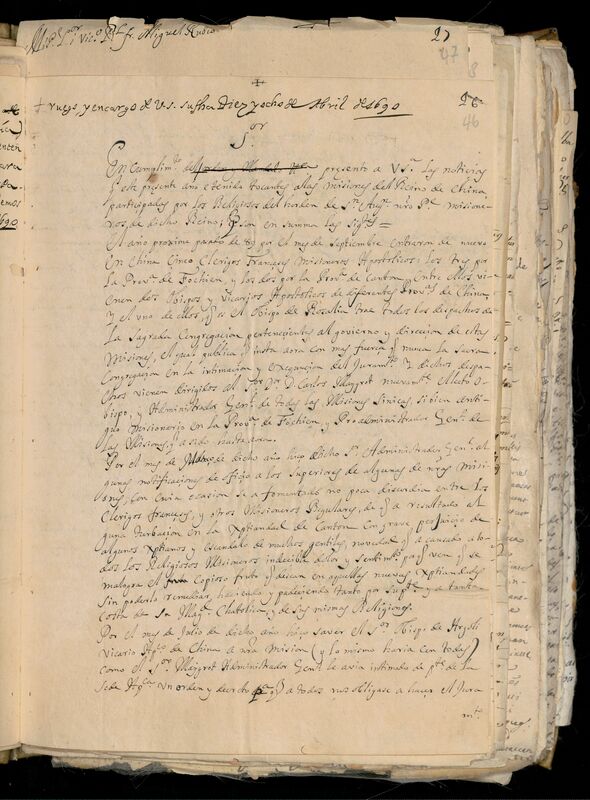 M. R. P. Vic.º P.l fr. Miguel Rubio
27
47
8
+
+ ruego, y encargo de V. S. su fha Diez y ocho de Abril de 1690
26
46
S.or
En Cumplim.to de presento a V S.a las noticias
q este presente año e tenido tocantes a las misiones del Reino de China
participadas por los Religiosos del horden de S.n Aug.n nro P.e misione-
ros, de dicho Reino; q son en summa las sig.tes =
El año proximo pasado de 89 por el mes de Septiembre entraron de nuevo
en China Cinco Clerigos Franceses Misioneros Apostolicos: los tres por
la Prov.a de Fochien, y los dos por la Prov.a de Canton, entre ellos vie-
nen dos Obispos y Vicarios Apostolicos de diferentes Prov.s de China,
y el uno de ellos, q es el Obispo de Rosalia trae todos los despachos de
la Sagrada Congregacion pertenecientes al govierno y direccion de estas
Misiones, el qual publica q insta aora con mas fuerça q nunca la Sacra
Congregacion en la intimacion y execucion del Juram.to y dichos despa-
chos vienen dirigidos al S.or D. Carlos Maigrot nuevam.te electo O-
bispo, y Administrador Gen.l de todas las Misiones Sinicas, si bien anti-
guo Misionario en la Prov.a de Fochien, y Pro administrador Gen.l de
las Misiones, q a sido hasta aora.
Por el mes de de dicho año hizo dicho S.r Administrador Gen.l al
gunas notificaciones de oficio a los Superiores de algunas de nras Misi-
ones, con cuia ocasion se a fomentado no poca discordia entre los
Clerigos franceses, y otros Misioneros Regulares, de q a resultado al
guna turbacion en la Xptiandad de Canton con grave perjuicio de
algunos Xptianos y escandalo de muchos gentiles, novedad q a causado a to-
dos los Religiosos Misioneros indecible dolor y sentim.to pa q ven q se
malogra el Copioso fruto q desean en aquellas nuevas Xptiandades
sin poderlo remediar, haciendo y padeciendo tanto por y a tanta
costa de su Mag.d Chatolica, y de sus mismas Religiones.
Por el mes de Julio de dicho año hizo saver el S.or Obispo de
vicario App.co de China a nra Mision (y lo mismo haria con todas)
como el S.or Maigrot Administrador Gen.l le avia intimado de p.te de la
Sede App.ca un orden y decreto q a todos nos obligase a hacer el Jura
m.to